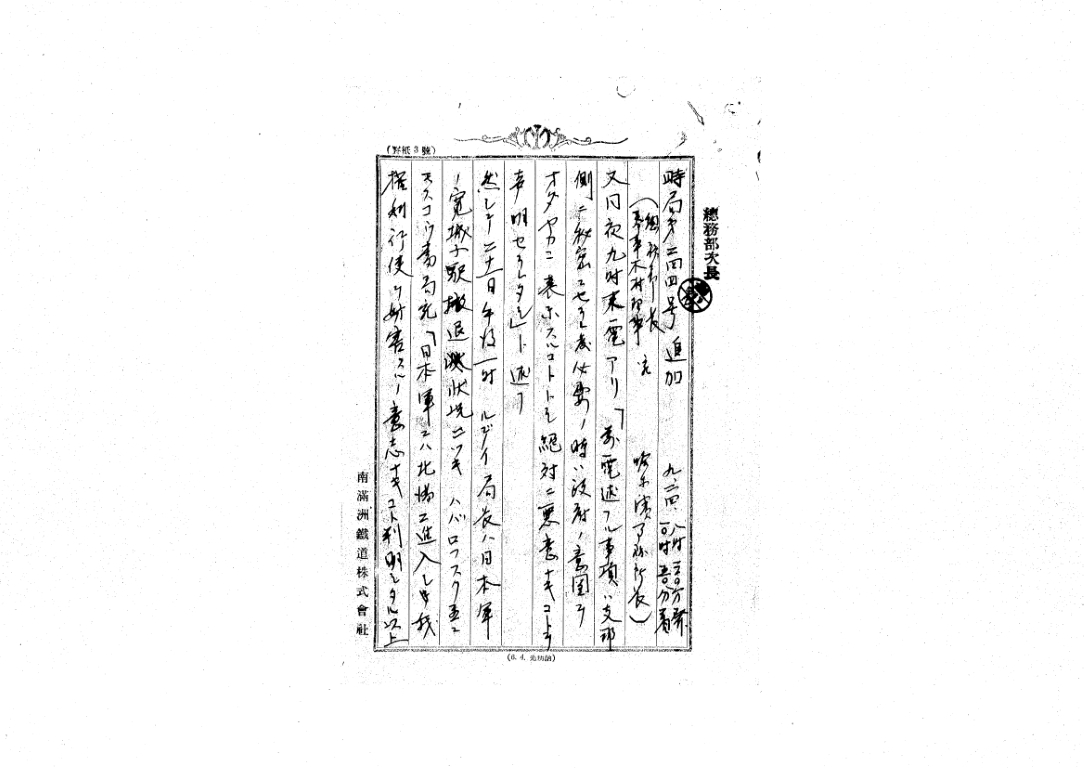 (罫紙3號)
總務部次長
時局第二四四号 追加 九、二四、八時三〇分発
一〇時五五分着
(總務部長 哈尓濱事務所長)
又同夜九時来電アリ「前電述フル事項ハ支那
側ニ秘密ニセラレ度必要ノ時ハ政府ノ意図ヲ
オダヤカニ表示スルコトトシ絶対ニ悪意ナキコトヲ
声明セラレタシ」ト述フ
然シテ二十二日午後一時ルデイ局長ハ日本軍
ノ寛城子駅撤退状況ニツキハバロフスク並ニ
モスコウ当局宛「日本軍ニハ北満ニ進入シ我
権利行使ヲ妨害スルノ意志ナキコト判明シタル以上
南滿洲鐵道株式會社